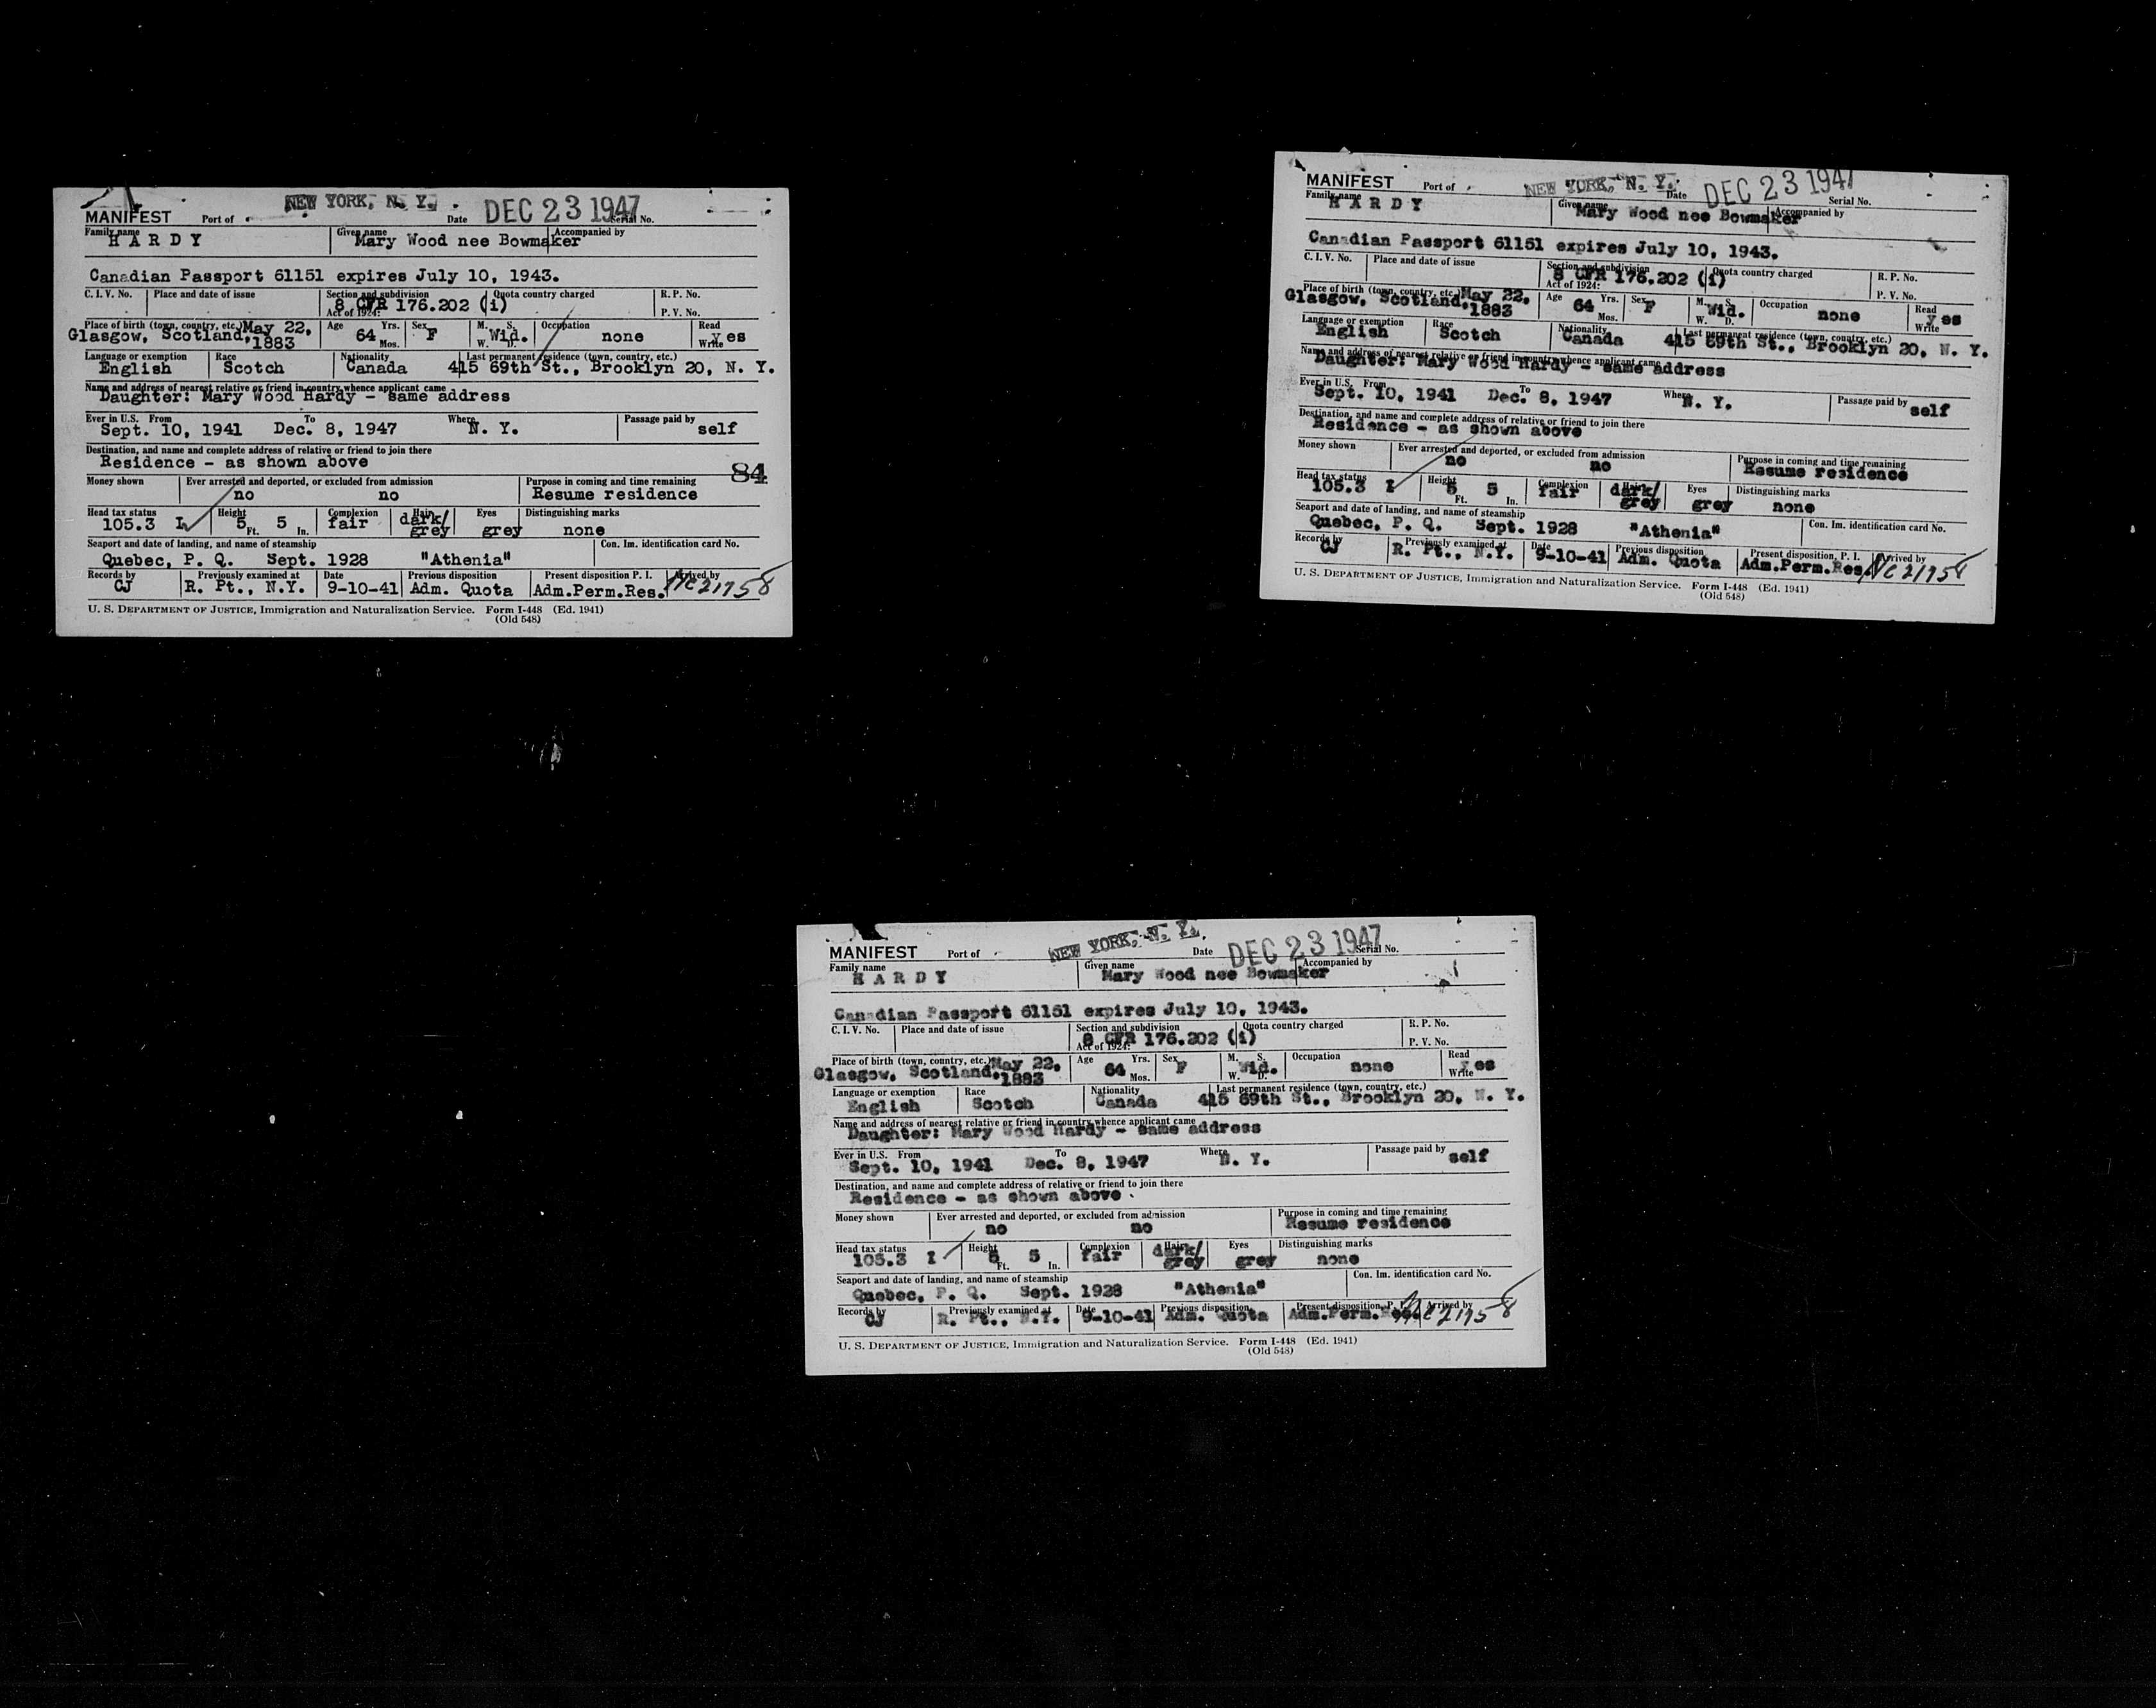 NEW YORK, N. Y. DEC 23 1947
MANIFEST Port of Date Serial No.
Family name Given name Accompanied by
HARDY Mary Wood nee Bowmaker
Canadian Passport 61151 expires July 10, 1943.
C. I. V. No. Place and date of issue Section and subdivision Quota country charged R. P. No.
8 CFR 176.202 (i)
Act of 1924: P. V. No.
Place of birth (town, country, etc.) May 22, Age 64 Yrs. Sex F M. S. Wid. Occupation none Read yes
Glasgow, Scotland, 1883 Mos. W. D. Write
Language or exemption Race Nationality Last permanent residence (town, country, etc.)
English Scotch Canada 415 69th St., Brooklyn 20, N. Y.
Name and address of nearest relative or friend in country whence applicant came
Daughter: Mary Wood Hardy - same address
Ever in U.S. From To Where Passage paid by
Sept. 10, 1941 Dec. 8, 1947 N. Y. self
Destination, and name and complete address of relative or friend to join there
Residence - as shown above
84
Money shown Ever arrested and deported, or excluded from admission Purpose in coming and time remaining
no no Resume residence
Head tax status Height Complexion Hair Eyes Distinguishing marks
105.3 I 5 Ft. 5 In. fair dark/grey grey none
Seaport and date of landing, and name of steamship Con. Im. identification card No.
Quebec, P. Q. Sept. 1928 "Athenia"
Records by Previously examined at Date Previous disposition Present disposition P. I. Arrived by
CJ R. Pt., N.Y. 9-10-41 Adm. Quota Adm.Perm.Res. 21758
U. S. DEPARTMENT OF JUSTICE, Immigration and Naturalization Service. Form I-448 (Ed. 1941)
(Old 548)
NEW YORK, N. Y. DEC 23 1947
MANIFEST Port of Date Serial No.
Family name Given name Accompanied by
HARDY Mary Wood nee Bowmaker
Canadian Passport 61151 expires July 10, 1943.
C. I. V. No. Place and date of issue Section and subdivision Quota country charged R. P. No.
8 CFR 176.202 (i)
Act of 1924: P. V. No.
Place of birth (town, country, etc.) May 22, Age 64 Yrs. Sex F M. S. Wid. Occupation none Read yes
Glasgow, Scotland, 1883 Mos. W. D. Write
Language or exemption Race Nationality Last permanent residence (town, country, etc.)
English Scotch Canada 415 69th St., Brooklyn 20, N. Y.
Name and address of nearest relative or friend in country whence applicant came
Daughter: Mary Wood Hardy - same address
Ever in U.S. From To Where Passage paid by
Sept. 10, 1941 Dec. 8, 1947 N. Y. self
Destination, and name and complete address of relative or friend to join there
Residence - as shown above
Money shown Ever arrested and deported, or excluded from admission Purpose in coming and time remaining
no no Resume residence
Head tax status Height Complexion Hair Eyes Distinguishing marks
105.3 I 5 Ft. 5 In. fair dark/grey grey none
Seaport and date of landing, and name of steamship Con. Im. identification card No.
Quebec, P. Q. Sept. 1928 "Athenia"
Records by Previously examined at Date Previous disposition Present disposition, P. I. Arrived by
CJ R. Pt., N.Y. 9-10-41 Adm. Quota Adm.Perm.Res. 21758
U. S. DEPARTMENT OF JUSTICE, Immigration and Naturalization Service. Form I-448 (Ed. 1941)
(Old 548)
NEW YORK, N. Y. DEC 23 1947
MANIFEST Port of Date Serial No.
Family name Given name Accompanied by
HARDY Mary Wood nee Bowmaker
Canadian Passport 61151 expires July 10, 1943.
C. I. V. No. Place and date of issue Section and subdivision Quota country charged R. P. No.
8 CFR 176.202 (i)
Act of 1924: P. V. No.
Place of birth (town, country, etc.) May 22, Age 64 Yrs. Sex F M. S. Wid. Occupation none Read yes
Glasgow, Scotland, 1883 Mos. W. D. Write
Language or exemption Race Nationality Last permanent residence (town, country, etc.)
English Scotch Canada 415 69th St., Brooklyn 20, N. Y.
Name and address of nearest relative or friend in country whence applicant came
Daughter: Mary Wood Hardy - same address
Ever in U.S. From To Where Passage paid by
Sept. 10, 1941 Dec. 8, 1947 N. Y. self
Destination, and name and complete address of relative or friend to join there
Residence - as shown above
Money shown Ever arrested and deported, or excluded from admission Purpose in coming and time remaining
no no Resume residence
Head tax status Height Complexion Hair Eyes Distinguishing marks
105.3 I 5 Ft. 5 In. fair dark/grey grey none
Seaport and date of landing, and name of steamship Con. Im. identification card No.
Quebec, P. Q. Sept. 1928 "Athenia"
Records by Previously examined at Date Previous disposition Present disposition, P. I. Arrived by
CJ R. Pt., N.Y. 9-10-41 Adm. Quota Adm.Perm.Res. 21758
U. S. DEPARTMENT OF JUSTICE, Immigration and Naturalization Service. Form I-448 (Ed. 1941)
(Old 548)